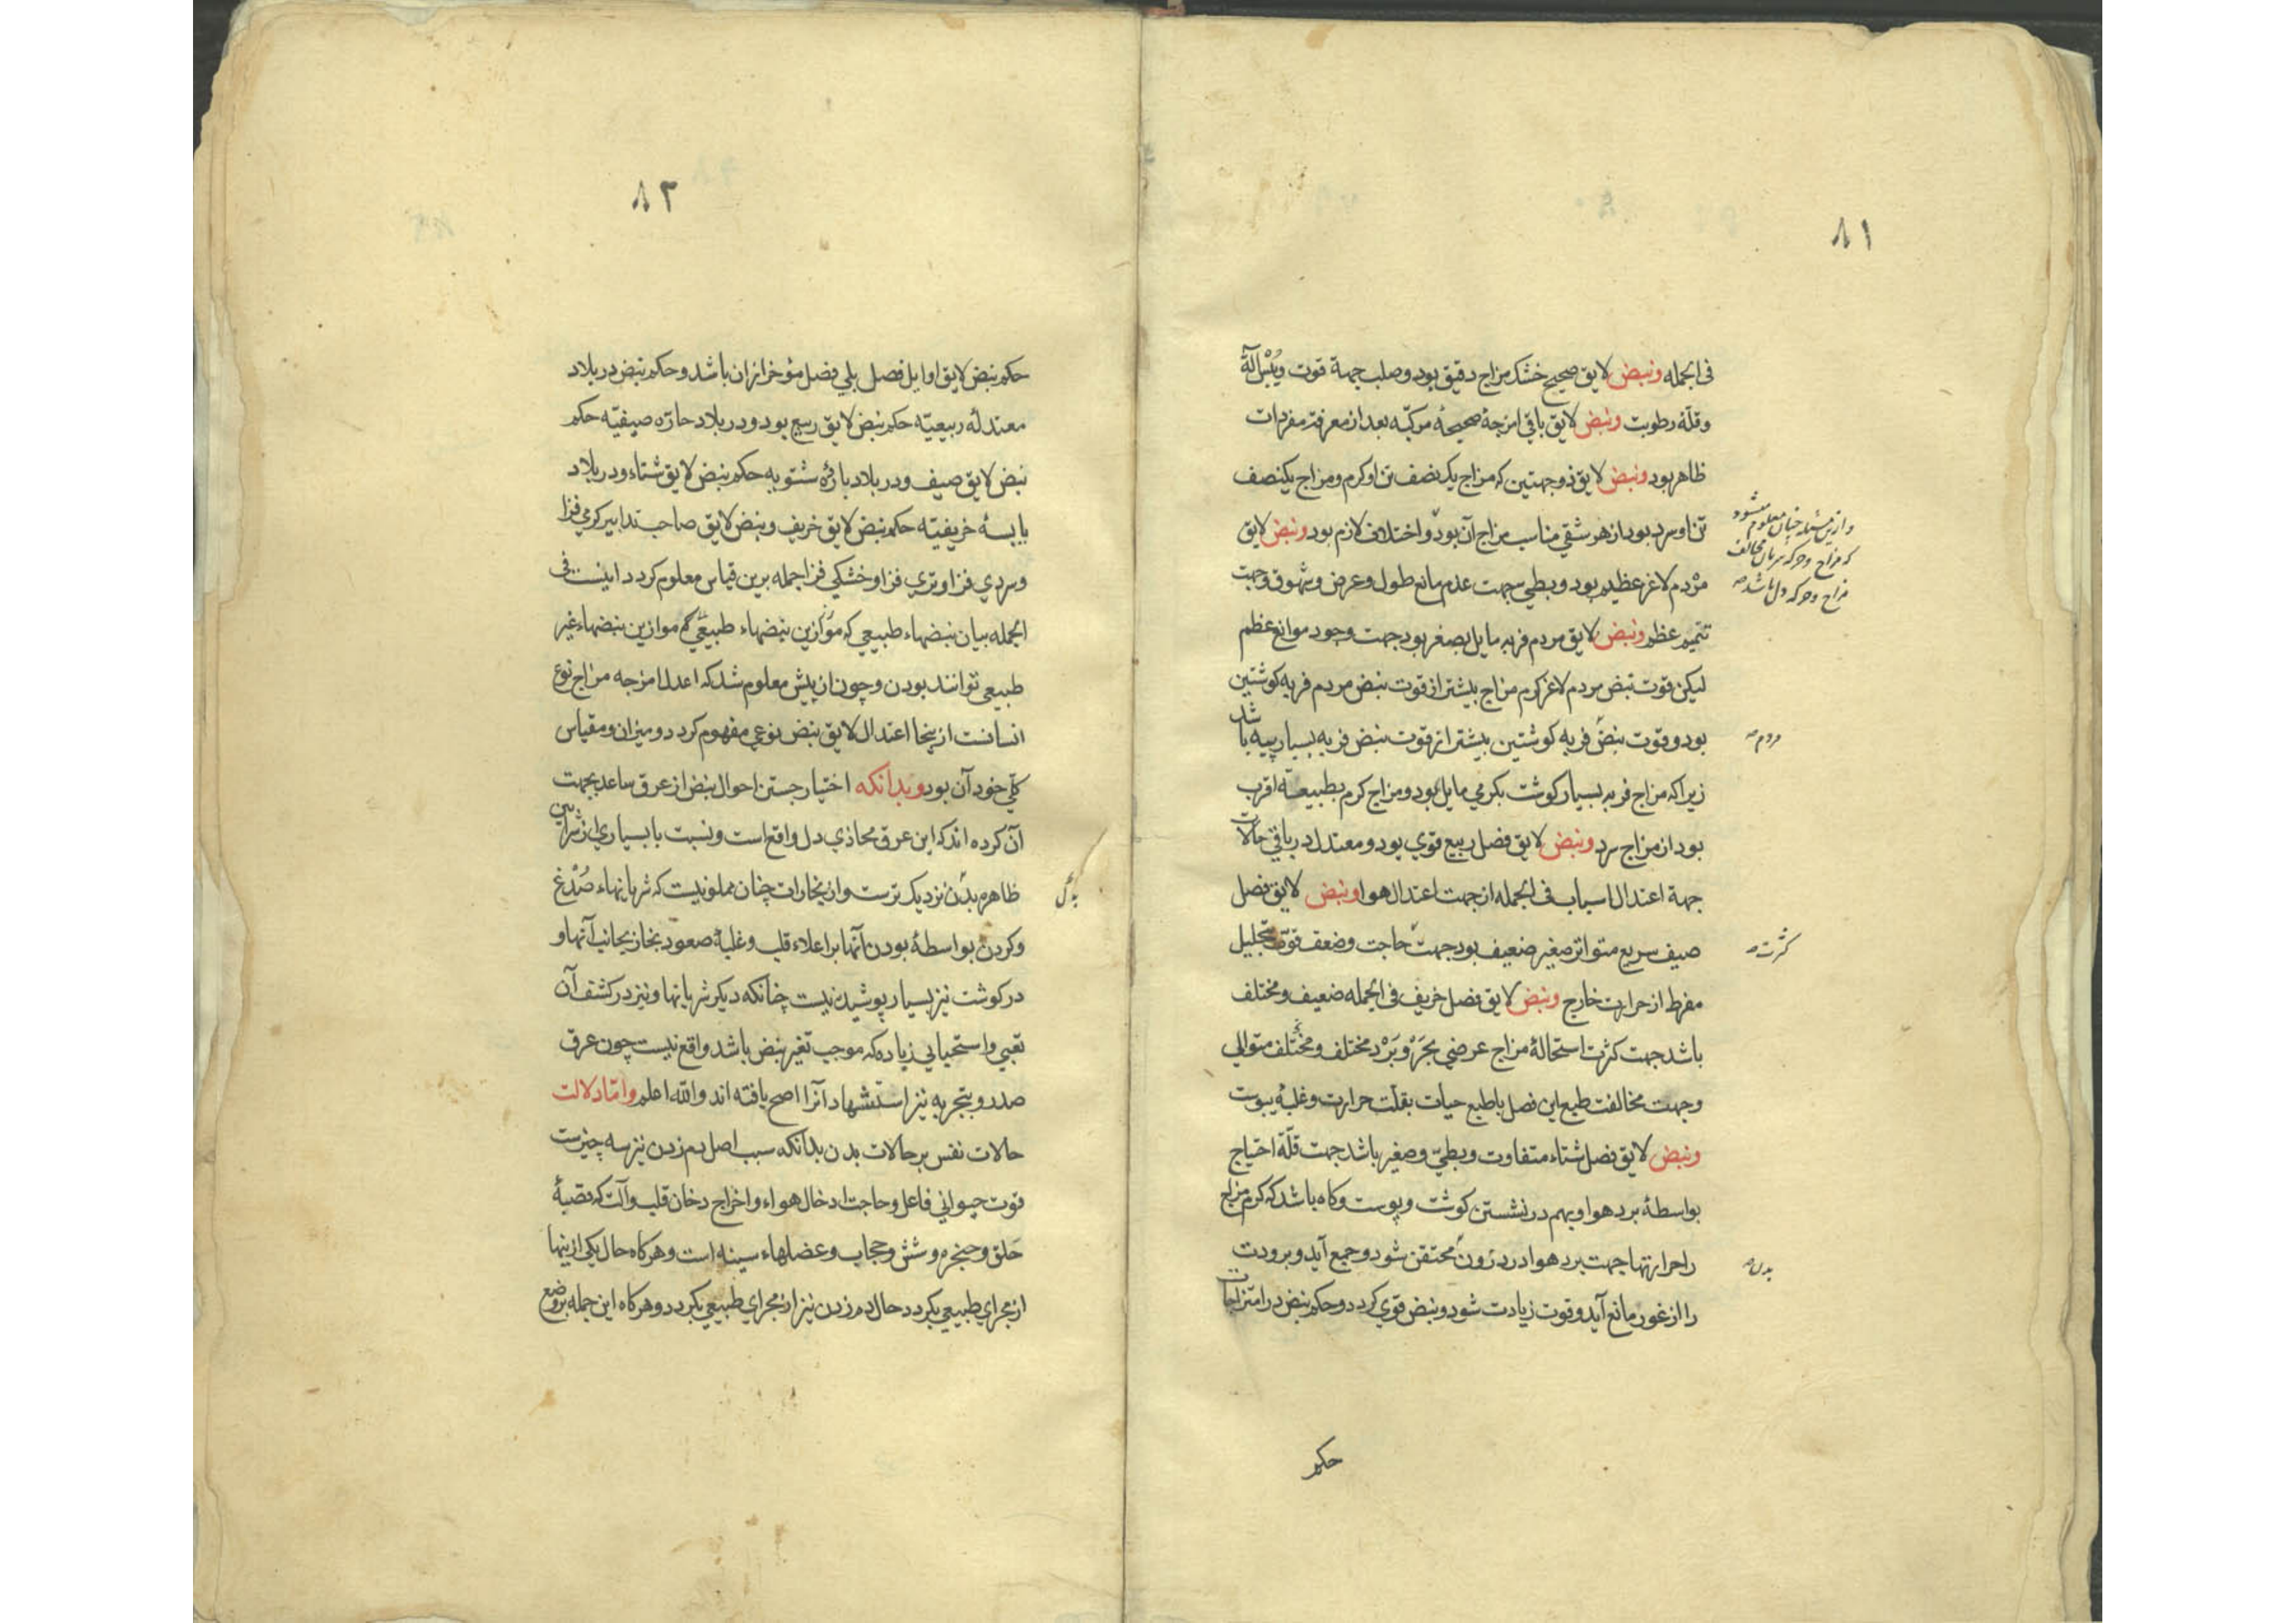 ۸۱
فی الجمله ونبض لایق صحیح خشک مزاج دقیق بود و صلب جهة قوت ویُبْس آلة
وقلّة رطوبت ونبض لایق باقی امزجهٔ صحیحهٔ مرکبّه بعد از معرفت مفردات
ظاهر بود ونبض لایق ذوجهتین که مزاج یک نصف تن او کرم و مزاج یکنصف
تن او سرد بود از هر شقی مناسب مزاج آن بود و اختلافی لازم بود ونبض لایق
مرْدم لاغر عظیم بود و بطی بجهت عدم مانع طول و عرض و شهوق و جهت
تتمیم عظم ونبض لایق مردم فربه مایل بصغر بود جهت وجود موانع عظم
لیکن قوت نبض مردم لاغر کرم مزاج بیشتر از قوت نبض مردم فربه کوشتین
بود و قوت نبض فربه کوشتین بیشتر از قوت نبض فربه بسیار پیه باشد
زیرا که مزاج فربه بسیار کوشت بکرمی مایل بود و مزاج کرم بطبیعة اقرب
بود از مزاج سرد ونبض لایق فصل ربیع قوی بود و معتدل در باقی حالات
جهة اعتدال اسباب فی الجمله از جهت اعتدال هوا ونبض لایق فصل
صیف سریع متواتر صغیر ضعیف بود جهت حاجت و ضعف قوّت بتحلیل
مفرط از حرارت خارج ونبض لایق فصل خریف فی الجمله ضعیف و مختلف
باشد جهت کثرت استحالهٔ مزاج عرضی بحَرّ و بَرْد مختلف و مختلف متوالی
وجهت مخالفت طبع این فصل با طبع حیات بقلّت حرارت و غلبهٔ یبوست
ونبض لایق فصل شتاء متفاوت و بطیّ و صغیر باشد جهت قلّة احتیاج
بواسطهٔ برد هوا و بهم در نشستن کوشت و پوست و کاه باشد که کرم مزاج
را حرارتها جهت برد هوا در درون محتقن شود و جمع آید و برودت
را از غور مانع آید و قوت زیادت شود و نبض قوی کردد و حکم نبض در امتزاجات
حکم
وازین مسئله چنان معلوم میشود
که مزاج و حرکه شریان مخالف
مزاج و حرکه دل باشد صه
مردم صه
کثرت صه
بدن صه
۸۲
حکم نبض لایق اوایل فصل بلی فصل مؤخر از ان باشد و حکم نبض در بلاد
معتدلهٔ ربیعیّه حکم نبض لایق ربیع بود و در بلاد حارّه صیفیّه حکم
نبض لایق صیف و در بلاد باردهٔ شتویه حکم نبض لایق شتاء و در بلاد
یابسهٔ خریفیّه حکم نبض لایق خریف و نبض لایق صاحب تدابیر کرمی فزا
و سردی فزا و تری فزا و خشکی فزا جمله برین قیاس معلوم کردد اینست فی
الجمله بیان نبضهاء طبیعی که موازین نبضهاء طبیعی کم موازین نبضهاء غیر
طبیعی توانند بودن و چون از پیش معلوم شد که اعدل امزجه مزاج نوع
انسانست از ینجا اعتدال لایق نبض نوعی مفهوم کردد و میزان و مقیاس
کلّی خود آن بود وبدانکه اختیار جستن احوال نبض از عرق ساعد بجهت
آن کرده اند که این عرق محاذی دل واقع است و نسبت با بسیاری از شرایین
ظاهره بدن نزدیک ترست و از بخارات چنان مملو نیست که شریانهاء صُدْغ
و کردن بواسطهٔ بودن آنها بر اعلاء قلب و غلبهٔ صعود بخار بجانب آنها و
در کوشت نیز بسیار پوشیده نیست چنانکه دیکر شریانها و نیز در کشف آن
تعبی و استحیایی زیاده که موجب تغیر نبض باشد واقع نیست چون عرق
صدر و بتجربه نیز استشهاد آنرا اصح یافته اند والله اعلم وامّا دلالت
حالات نفس بر حالات بدن بدانکه سبب اصل دم زدن نیز سه چیزست
قوت حیوانی فاعل و حاجت ادخال هواء و اخراج دخان قلب و آلت که قصبهٔ
حَلق و حنجره و شش و حجاب و عضلهاء سینه است و هرکاه حال یکی از ینها
از مجرای طبیعی بکردد حال دم زدن نیز از مجرای طبیعی بکردد و هرکاه این جمله بر وضع